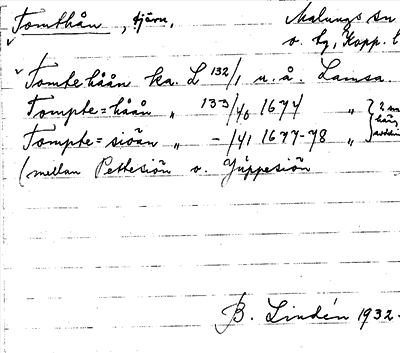 Tomthån, tjärn, Malungs sn
o. tg, Kopp. l
Tomtehåån ka. L 132/1 u.å. Lamsa.
Tompte=håån " 133/40 1674 "
Tompte=siöän " - /41 1677-78 "
(mellan Pettesiön o. Jüppesiön
B. Lindén 1932.